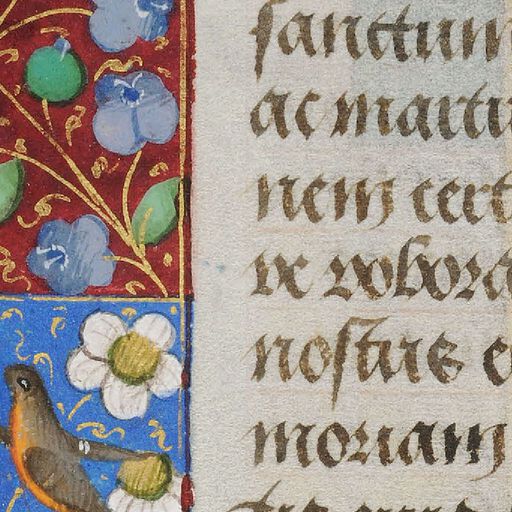 sanctum
ac marti
nem cert
ix robora
nostris e
moriam